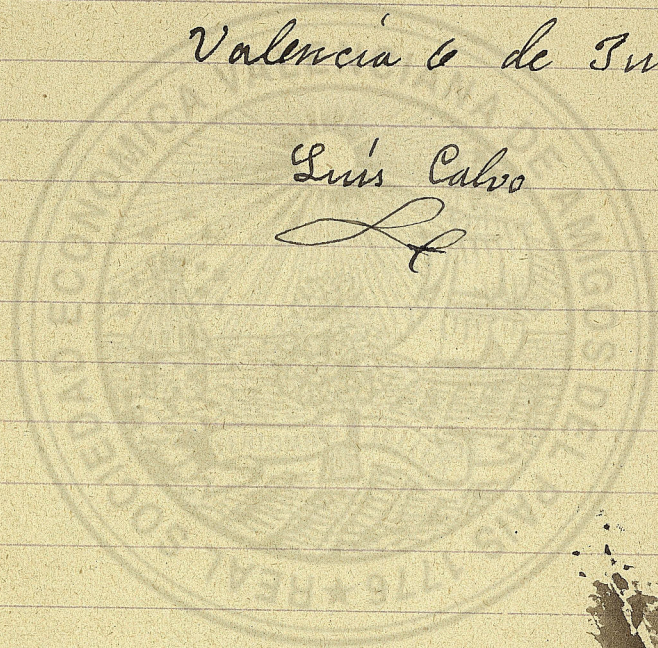 Valencia 6 de Ju
Luís Calvo
REAL SOCIEDAD ECONOMICA VALENCIANA DE AMIGOS DEL PAIS 1776